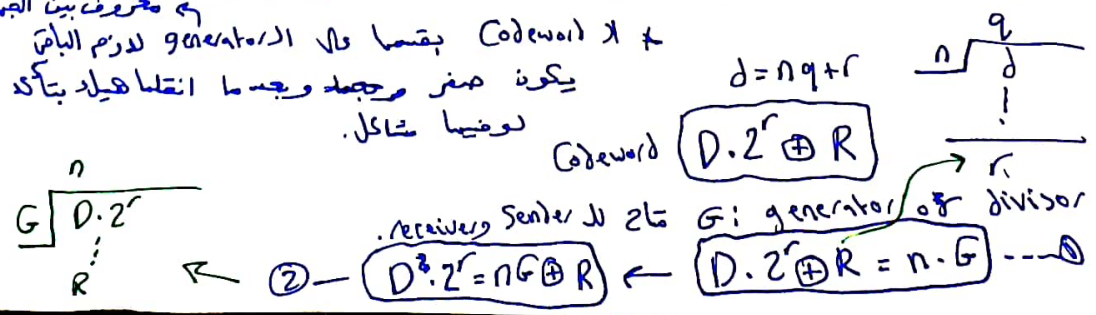 معروف بين
* لا Codeword بقسما على الـ generator لازم الباقي
يكون صفر وبعد ما انقلها هيك بتأكد
لو فيها مشاكل.
d = nq+r
n q d r
Codeword D.2^r ⊕ R
G: generator or divisor متاح لل Sender و receiver.
D.2^r ⊕ R = n.G ---- ①
← D.2^r = nG ⊕ R — ②
n
G D.2^r
R